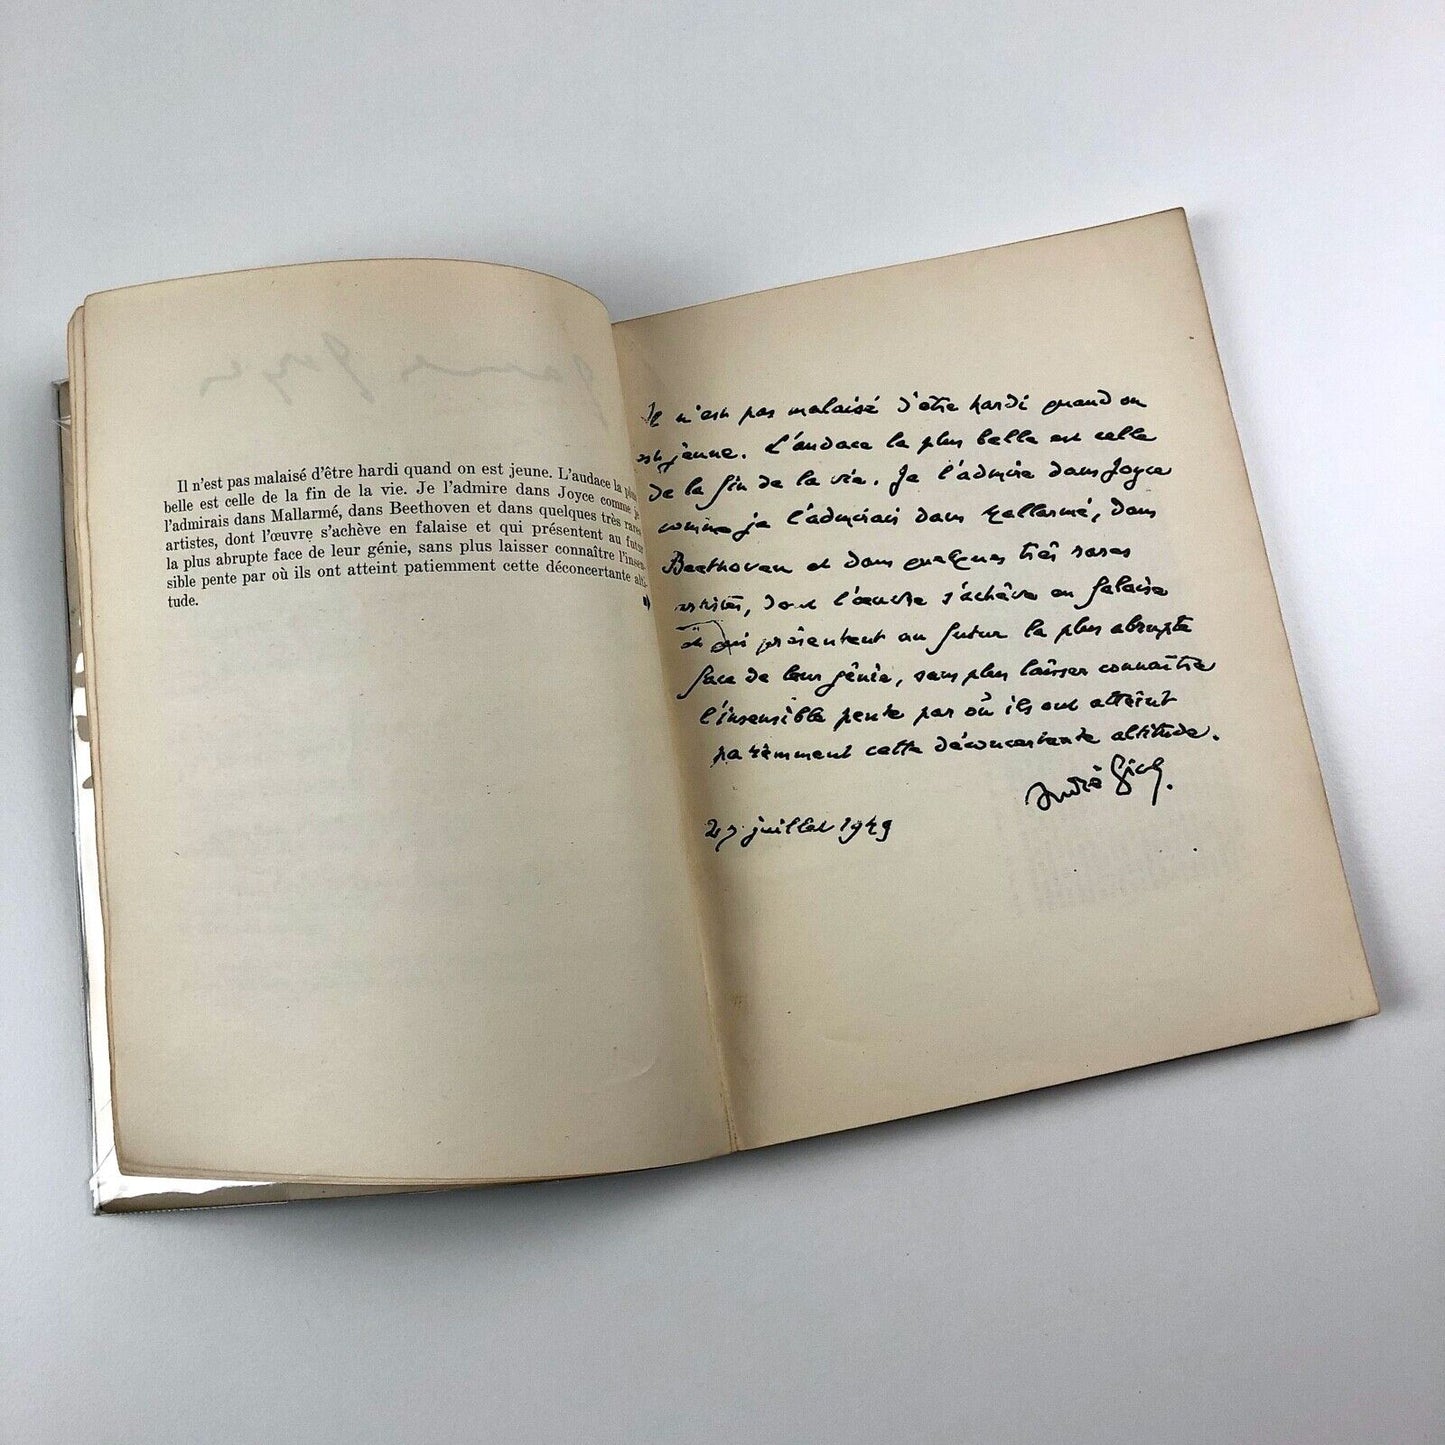 Il n'est pas malaisé d'être hardi quand on est jeune. L'audace la plus
belle est celle de la fin de la vie. Je l'admire dans Joyce comme je
l'admirais dans Mallarmé, dans Beethoven et dans quelques très rares
artistes, dont l'œuvre s'achève en falaise et qui présentent au futur
la plus abrupte face de leur génie, sans plus laisser connaître l'insen-
sible pente par où ils ont atteint patiemment cette déconcertante alti-
tude.
Il n'est pas malaisé d'être hardi quand on
est jeune. L'audace la plus belle est celle
de la fin de la vie. Je l'admire dans Joyce
comme je l'admirais dans Mallarmé, dans
Beethoven et dans quelques très rares
artistes, dont l'œuvre s'achève en falaise
et qui présentent au futur la plus abrupte
face de leur génie, sans plus laisser connaître
l'insensible pente par où ils ont atteint
patiemment cette déconcertante altitude.
André Gide.
27 juillet 1949